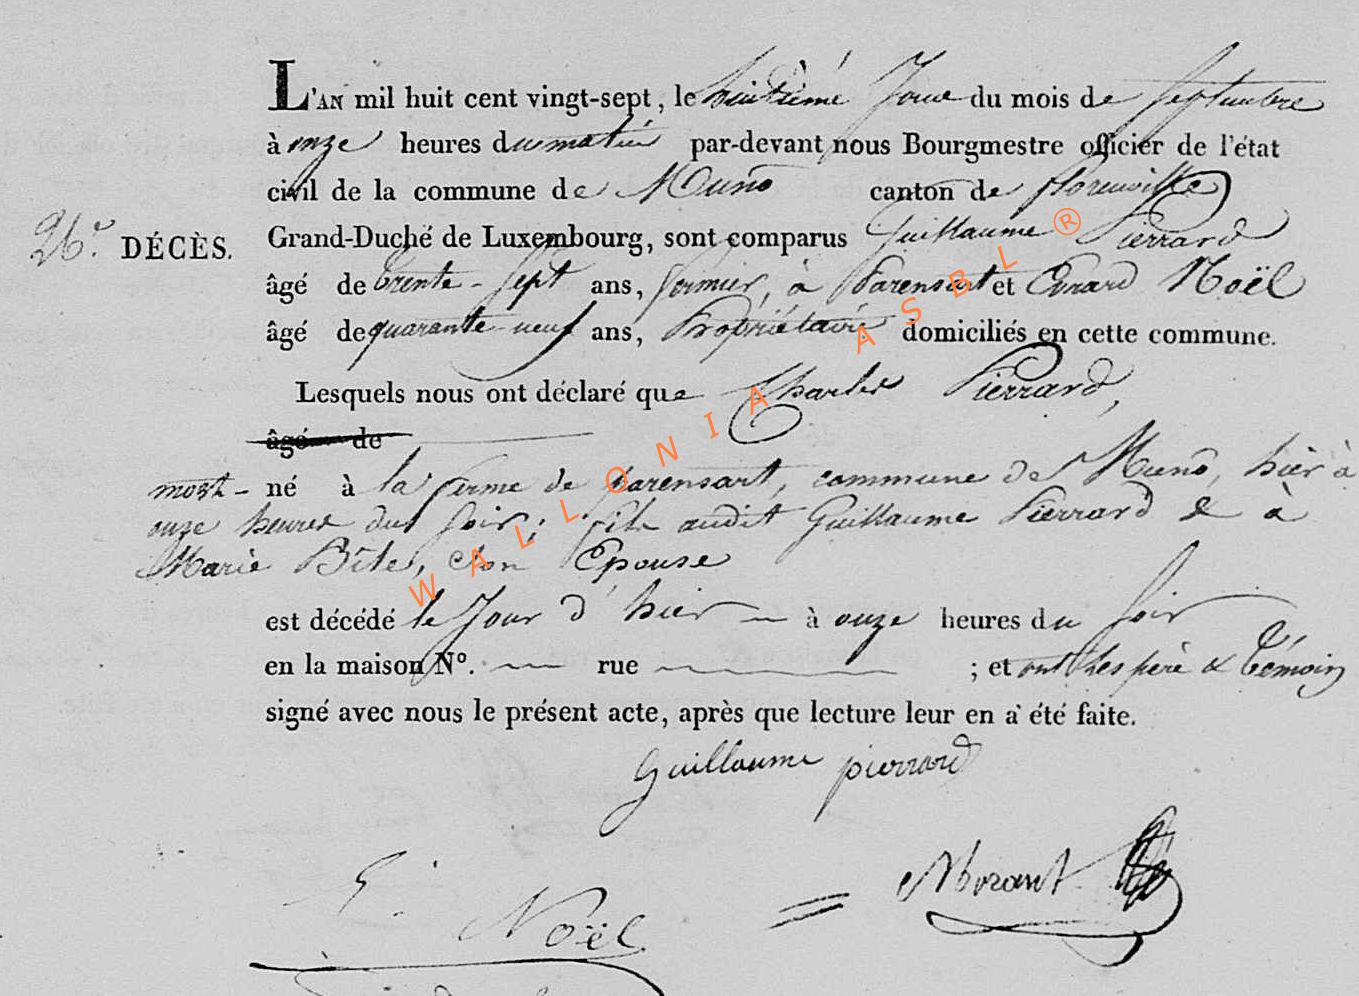 L'AN mil huit cent vingt-sept, le huitième Jour du mois de Septembre
à onze heures du matin par-devant nous Bourgmestre officier de l'état
civil de la commune de Muno canton de florenville
26.e DÉCÈS. Grand-Duché de Luxembourg, sont comparus Guillaume Pierrard
âgé de trente-sept ans, fermier, à parensart et Evrard Noël
âgé de quarante-neuf ans, Propriétaire domiciliés en cette commune.
Lesquels nous ont déclaré que Charles Pierrard,
âgé de
mort-né à la ferme de parensart, commune de Muno, hier à
onze heures du Soir; fils audit Guillaume Pierrard & à
Marie Bite, Son Epouse
est décédé le Jour d'hier à onze heures du Soir
en la maison N°. rue ; et ont Les père & Témoin
signé avec nous le présent acte, après que lecture leur en a été faite.
Guillaume pierrard
E. Noël
Morant
WALLONIA ASBL ®